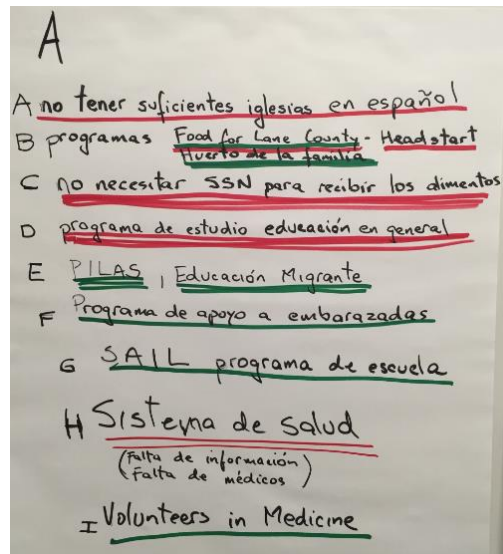 A
A no tener suficientes iglesias en español
B programas Food for Lane County - Head start
Huerto de la familia
C no necesitar SSN para recibir los alimentos
D programa de estudio educación en general
E PILAS, Educación Migrante
F Programa de apoyo a embarazadas
G SAIL programa de escuela
H Sistema de salud
(Falta de información
Falta de médicos)
I Volunteers in Medicine